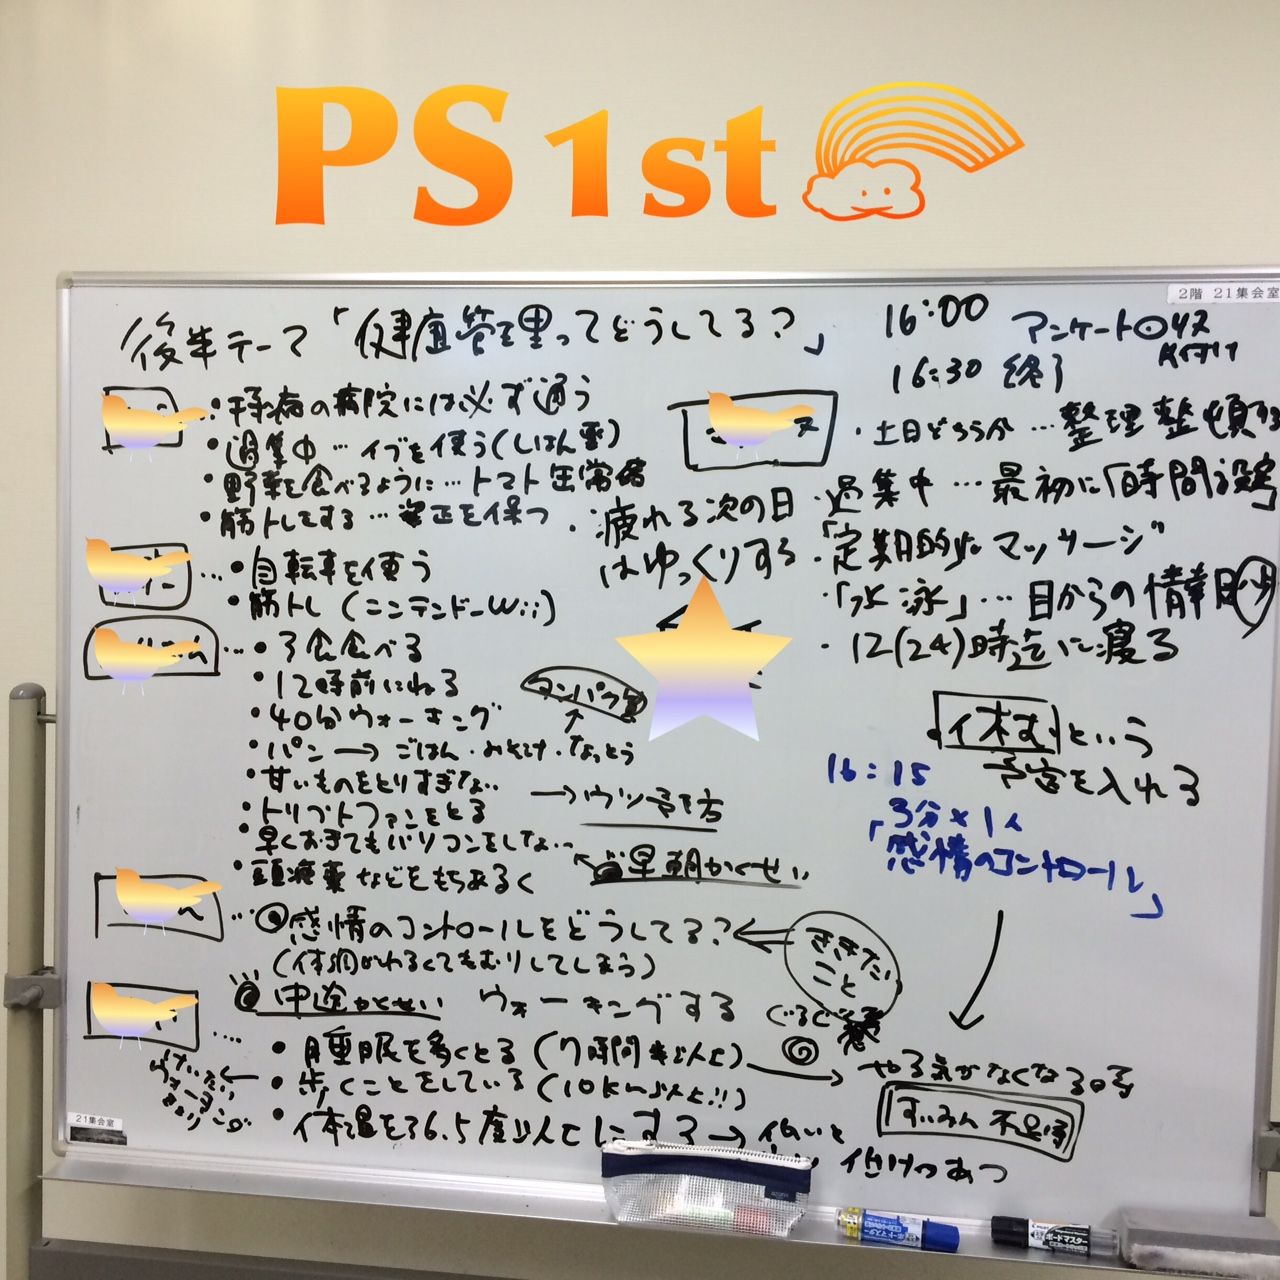 PS 1st
2階 21集会室
後半テーマ「健康管理ってどうしてる?」
16:00
アンケート
16:30 終了
・持病の病院には必ず通う
・過集中…イブを使う(しはん薬)
・野菜を食べるように…トマト缶常備
・筋トレをする…姿正を保つ
…・自転車を使う
・筋トレ(ニンテンドーWii)
…・3食食べる
・12時前にねる
・40分ウォーキング
タンパク質
↑
・パン→ごはん・みそ汁・なっとう
・甘いものをとりすぎない
→ウツ予防
・トリプトファンをとる
・早くおきてもパソコンをしない
←早朝かくせい
・頭痛薬などをもちあるく
…◎感情のコントロールをどうしてる?
(体調がわるくてもむりしてしまう)
ききたいこと
◎中途かくせい ウォーキングする
・睡眠を多くとる(7時間半以上)
・歩くことをしている(10km以上!!)
・体温を36.5度以上にする→低いと
ぐるぐる
やる気がなくなる
すいみん不足
・疲れる次の日
はゆっくりする
・土日どちらか…整理整頓
・過集中…最初に「時間設定
・「定期的なマッサージ
・「水泳」…目からの情報
・12(24)時迄に寝る
休む という
予定を入れる
16:15
3分×1人
「感情のコントロール」
21集会室
ボードマスター
ボードマスター